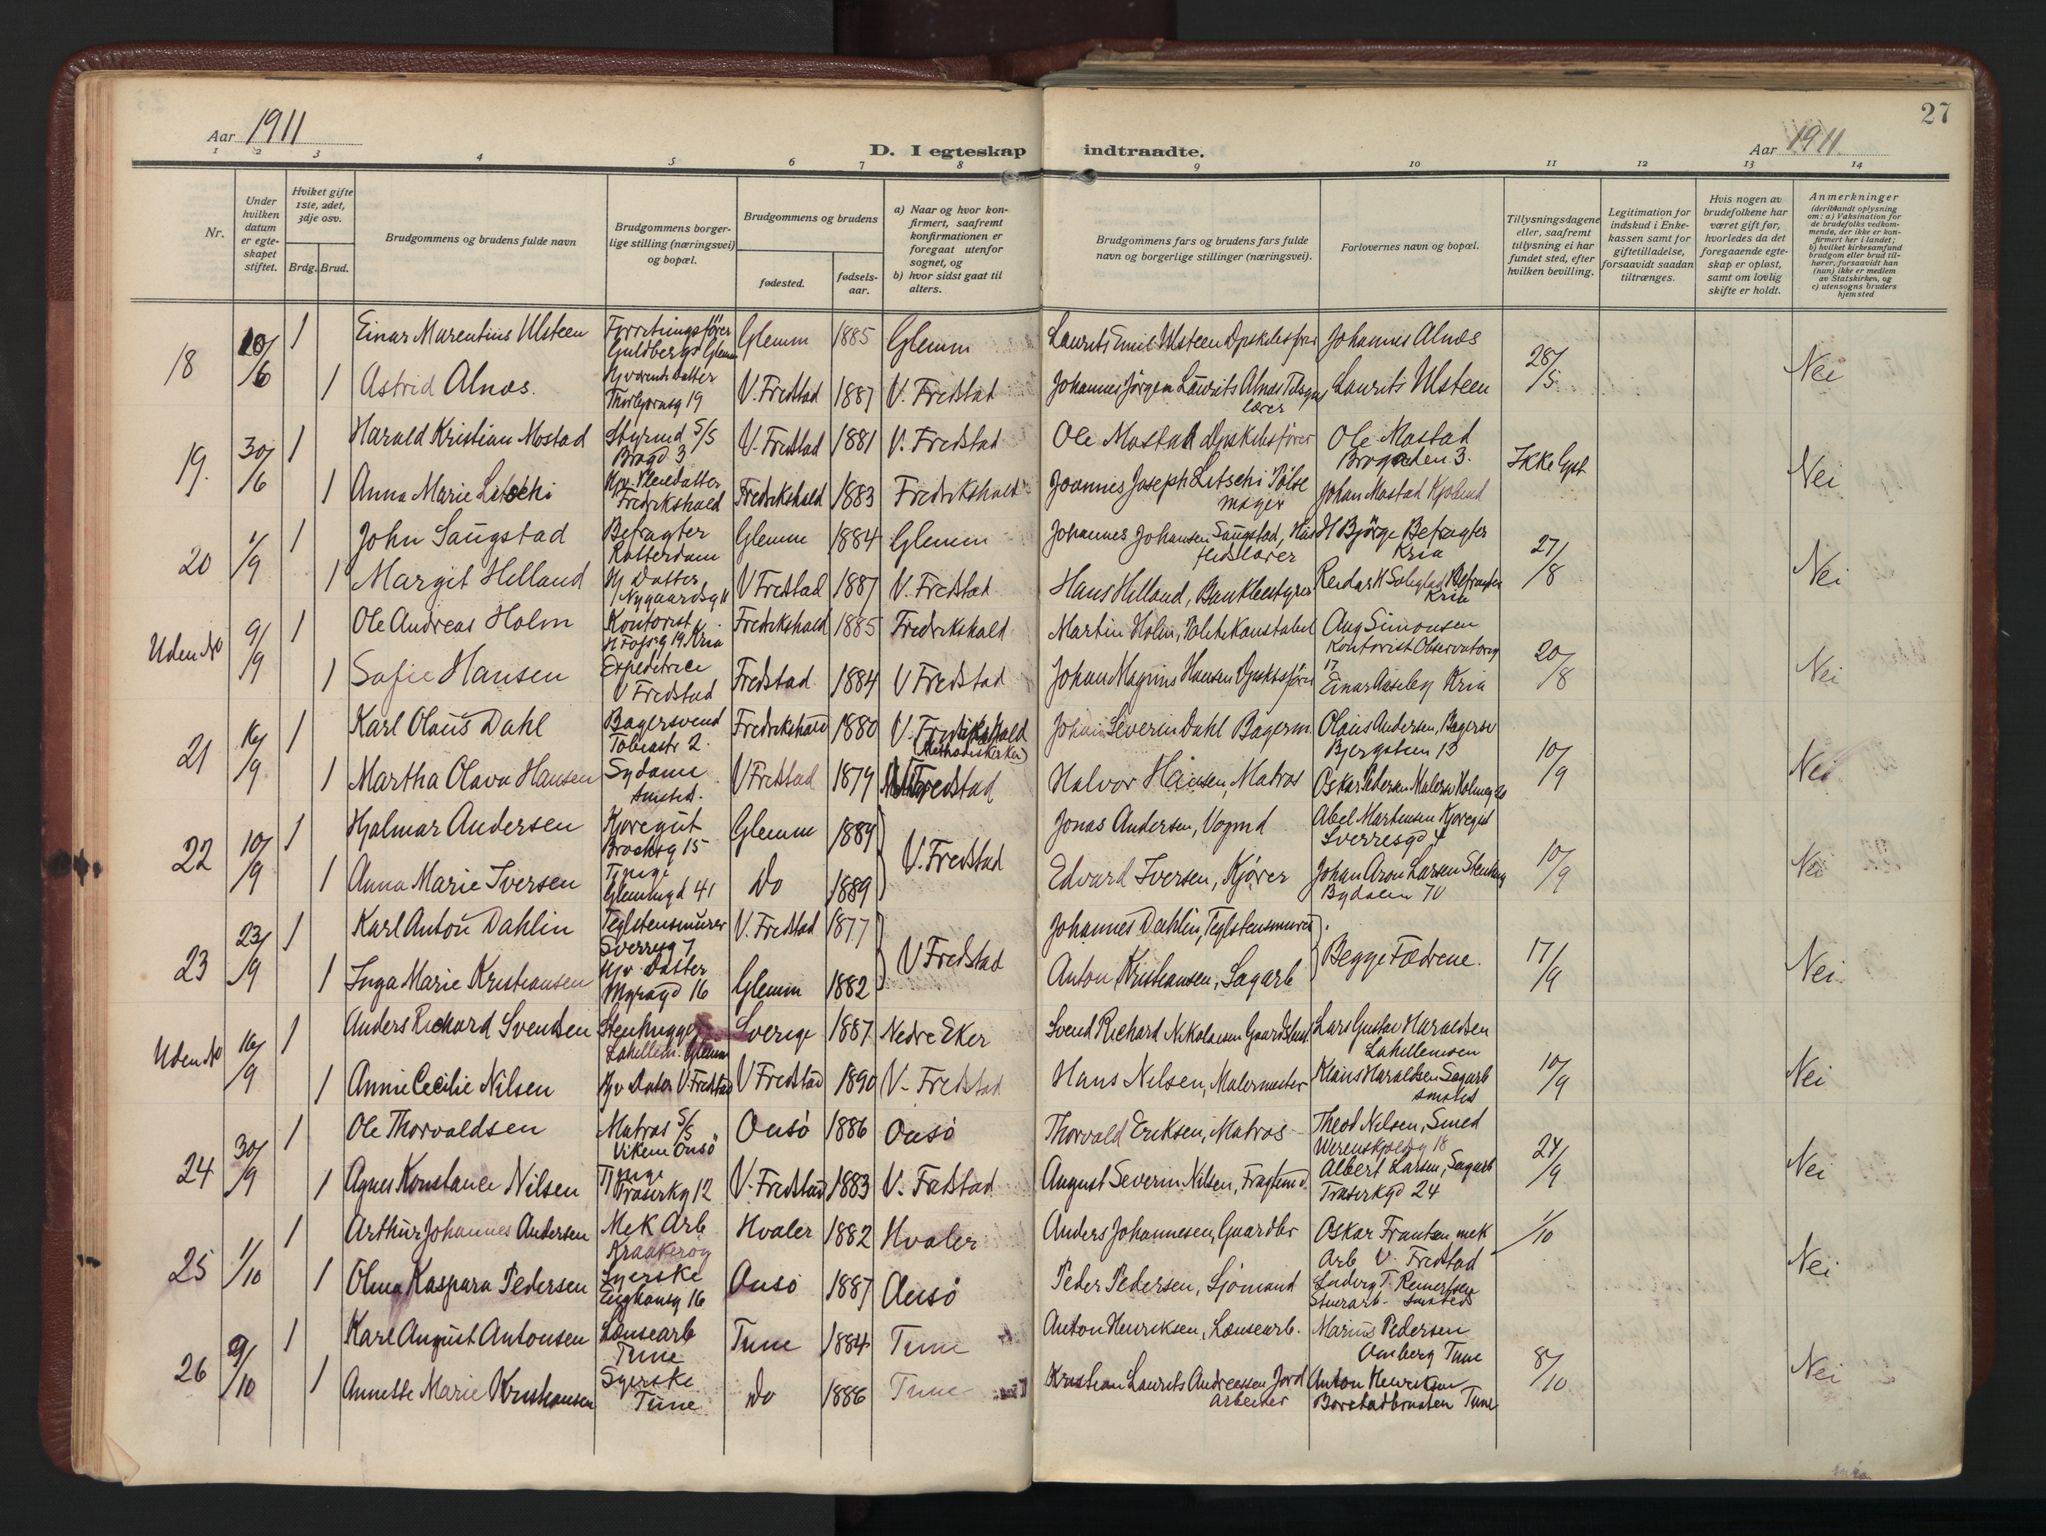 27
Aar 1911
D. I egteskap indtraadte.
Aar 1911
1 2 3 4 5 6 7 8 9 10 11 12 13 14
Nr.
Under hvilken datum er egteskapet stiftet.
Hviket gifte 1ste, 2det, 3dje osv.
Brdg. Brud.
Brudgommens og brudens fulde navn
Brudgommens borgerlige stilling (næringsvei) og bopæl.
Brudgommens og brudens
fødested.
fødselsaar.
a) Naar og hvor konfirmert, saafremt konfirmationen er foregaat utenfor sognet, og
b) hvor sidst gaat til alters.
Brudgommens fars og brudens fars fulde navn og borgerlige stillinger (næringsvei).
Forlovernes navn og bopæl.
Tillysningsdagene eller, saafremt tillysning ei har fundet sted, efter hvilken bevilling.
Legitimation for indskud i Enkekassen samt for giftetilladelse, forsaavidt saadan tiltrænges.
Hvis nogen av brudefolkene har været gift før, hvorledes da det foregaaende egteskap er opløst, samt om lovlig skifte er holdt.
Anmerkninger (deriblandt oplysning om: a) Vaksination for de brudefolks vedkommende, der ikke er konfirmert her i landet; b) hvilket kirkesamfund brudgom eller brud tilhører, forsaavidt han (hun) ikke er medlem av Statskirken, og c) utensogns bruders hjemsted
18 10/6 1 Einar Marentius Ulsteen Glemm 1885 Glemm Laurits Emil Ulsteen Johannes Alnæs 28/5 Nei
1 Astrid Alnæs. Hjværende Datter Thorbjørnsg 19 V. Fredstad 1887 V. Fredstad Johannes Jørgen Laurits Alnæs Laurits Ulsteen
19. 30/6 1 Harald Kristian Mostad Styrmd S/S Brogd 3 V. Fredstad 1881 V. Fredstad Ole Mostad Ole Mostad Brogaden 3. Ikke lyst Nei
1 Anna Marie Litschi Fredrikshald Fredrikshald 1883 Fredrikshald Joannes Joseph Litschi Pølsemager Johan Mostad
20 1/9 1 John Saugstad Befragter Rotterdam Glemm 1884 Glemm Johannes Johansen Saugstad, H Bjørge Befragter Kria 27/8 Nei
1 Margit Helland Hj Datter Nygaardsg V Fredstad 1887 V. Fredstad Hans Helland, Bankbestyrer Befragter Kria
Uden No 9/9 1 Ole Andreas Holm Kontorist Kria Fredrikshald 1885 Fredrikshald Martin Holm, Politikonstabel Aug Simonsen Kontorist Observatorieg 17 20/8 Nei
1 Sofie Hansen Expeditrice V Fredstad Fredstad 1884 V Fredstad Johan Magnus Hansen Einar Aaseby Kria
21 16/9 1 Karl Olaus Dahl Bagersvend Tobiastr 2. Fredrikshald 1880 Fredrikshald (Methodistkirken) Johan Severin Dahl Bagerm. Olaus Andersen, Bagersv 13 10/9 Nei
1 Martha Olava Hansen Sydame Smsted. V Fredstad 1879 Fredstad Halvor Hansen, Matros Oskar Pedersen Malersv
22 10/9 1 Hjalmar Andersen Kjøregut Brochsg 15 Glemm 1889 V. Fredstad Jonas Andersen, Vognmd Abel Martensen Kjøregut Sverresgd 4 10/9 Nei
1 Anna Marie Iversen Tjnge Glemmgd 41 Do 1889 Edvard Iversen, Kjører Johan Aron Larsen Bydalen 70
23 23/9 1 Karl Anton Dahlin Teglstensmurer Sverresg 7 V. Fredstad 1877 V Fredstad Johannes Dahlin, Teglstensmurer Begge Fædrene. 17/9 Nei
1 Inga Marie Kristiansen Hjv Datter Myragd 16 Glemm 1882 Anton Kristiansen, Sagarb
Uden No 16/9 1 Anders Richard Svendsen Stenhugger Lahellem. Glemm Sverige 1887 Nedre Eker Svend Richard Nikolaisen Lars Gustav Haraldsen Lahellemsen 10/9 Nei
1 Annie Cecilie Nilsen Hjv Dater V. Fredstad V Fredstad 1890 V. Fredstad Hans Nilsen, Malermester Klaus Haraldsen Sagarb smsteds
24 30/9 1 Ole Thorvaldsen Matros S/S Viken Onsø Onsø 1886 Onsø Thorvald Eriksen, Matros Theod Nilsen, Smed Werenskjoldsg 18 24/9 Nei
1 Agnes Konstance Nilsen Tjnge Trararkg 12 V. Fredstad 1883 V. Fredstad August Severin Nilsen, Fragtemd. Albert Larsen, Sagarb 24
25 1/10 1 Arthur Johannes Andersen Mek Arb Kraakerøy Hvaler 1882 Hvaler Anders Johannesen, Gaardbr Oskar Frantsen, mek Arb V. Fredstad 1/10 Nei
1 Olma Kaspara Pedersen Syerske 16 Onsø 1887 Onsø Peder Pedersen, Sjømand Ludvig T. Reinertsen smsteds
26 9/10 1 Karl August Antonsen Lænsearb Tune Tune 1884 Tune Anton Henriksen, Lænsearb. Marius Pedersen Omberg Tune 8/10 Nei
1 Annette Marie Kristiansen Syerske Tune Do 1886 Tune Kristian Laurits Andreassen Jordarbeider Anton Henriksen Borstadbraaten Tune